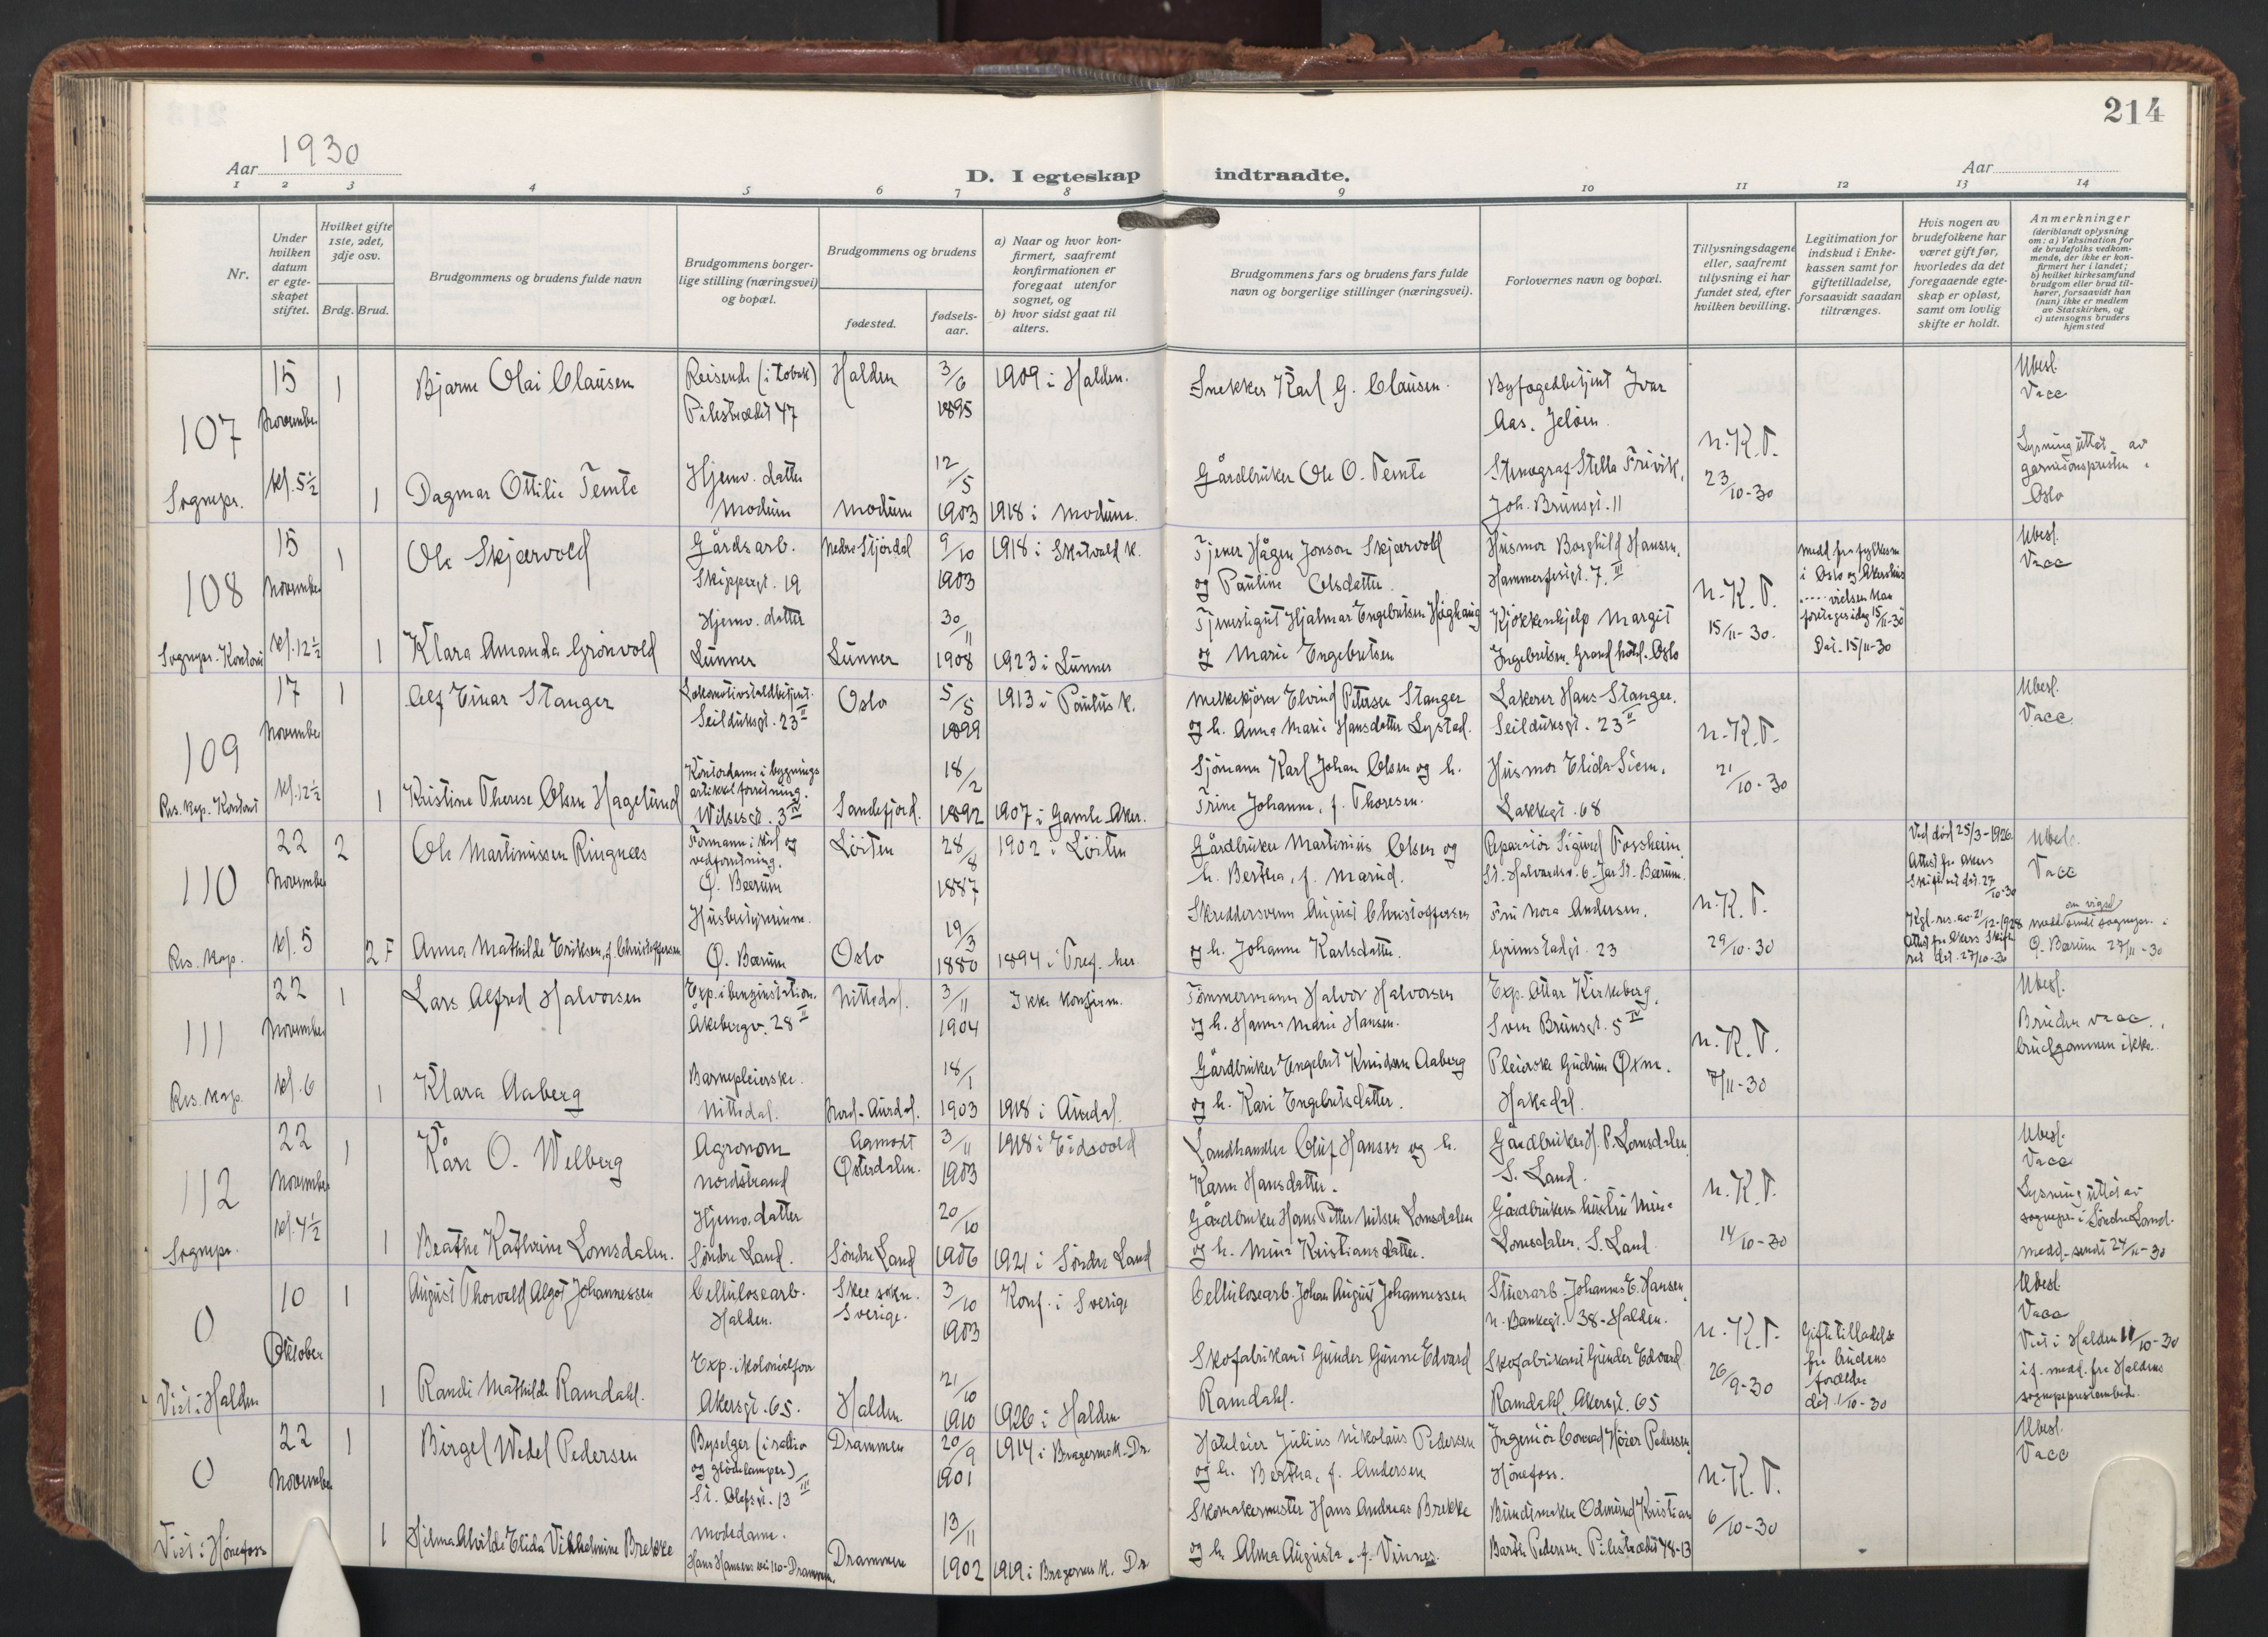 214
Aar 1930
D. I egteskap indtraadte.
Aar
1 2 3 4 5 6 7 8 9 10 11 12 13 14
Nr.
Under hvilken datum er egte-skapet stiftet.
Hvilket gifte 1ste, 2det, 3dje osv.
Brdg. Brud.
Brudgommens og brudens fulde navn
Brudgommens borger-lige stilling (næringsvei) og bopæl.
Brudgommens og brudens
fødested.
fødsels-aar.
a) Naar og hvor kon-firmert, saafremt konfirmationen er foregaat utenfor sognet, og
b) hvor sidst gaat til alters.
Brudgommens fars og brudens fars fulde navn og borgerlige stillinger (næringsvei).
Forlovernes navn og bopæl.
Tillysningsdagene eller, saafremt tillysning ei har fundet sted, efter hvilken bevilling.
Legitimation for indskud i Enke-kassen samt for giftetilladelse, forsaavidt saadan tiltrænges.
Hvis nogen av brudefolkene har været gift før, hvorledes da det foregaaende egte-skap er opløst, samt om lovlig skifte er holdt.
Anmerkninger
(deriblandt oplysning om: a) Vaksination for de brudefolks vedkom-mende, der ikke er kon-firmert her i landet;
b) hvilket kirkesamfund brudgom eller brud til-hører, forsaavidt han (hun) ikke er medlem av Statskirken, og
c) utensogns bruders hjemsted
107 Sognepr.
15 November kl. 5½
1 Bjarne Olai Clausen
Reisende (i tobak) Pilestrædet 47
Halden 3/6 1895
1909 i Halden.
Snekker Karl G. Clausen.
Byfogedbetjent Ivar Aas. Jeløen
Ubesl.
Vacc
1 Dagmar Ottilie Temte
Hjemv. datter Modum
Modum 12/5 1903
1918 i Modum.
Gårdbruker Ole O. Temte
Stenograf Stella Frivik, Joh. Brunsgt. 11
N.K.T.
23/10-30
Lysning uttat av garnisonspresten i Oslo
108 Sognepr. Kontor
15 November kl. 12½
1 Ole Skjærvold
Gårdsarb. Skippergt. 19
Nedre Stjørdal 9/10 1903
1918 i Skatvald k.
Tjener Hågen Jonson Skjærvold og Pauline Olsdatter
Husmor Borghild Hansen, Hammerfestgt. 7 III
Ubesl.
Vacc
1 Klara Amanda Grønvold
Hjemv. datter Lunner
Lunner 30/11 1908
1923 i Lunner
Tjenestegut Hjalmar Engebretsen Høghaug og Marie Engebretsen
Kjøkkenhjelp Margit Ingebretsen. Grand hotel. Oslo
N.K.T.
15/11-30.
Medd. fra fylkesm i Oslo og Akershus
vielsen kan foretages idag 15/11-30
Dat. 15/11-30
109 Res. kap. Kontor
17 November kl. 12½
1 Alf Einar Stanger
Lokomotivstaldbetjent. Seilduksgt. 23 II
Oslo 5/5 1899
1913 i Paulus k.
Melkekjører Elvind Petersen Stanger og h. Anna Marie Hansdatter Lystad.
Lakerer Hans Stanger. Seilduksgt. 23 II
Ubesl.
Vacc
1 Kristine Therese Olsen Hagelund
Kontordame i bygnings artikkel forretning. Wilsesgt. 3 IV
Sandefjord. 18/2 1892
1907 i Gamle Aker.
Sjømann Karl Johan Olsen og h. Trine Johanne, f. Thoresen.
Husmor Elida Siem, Lakkegt. 68
N.K.T.
21/10-30
110 Res. kap.
22 November kl. 5
2 Ole Martinussen Ringnæs
Formann i kul og vedforretning. Ø. Bærum
Løiten 28/8 1887
1902 i Løiten
Gårdbruker Martinius Olsen og h. Bertha, f. Marud.
Reparatør Sigurd Fossheim, St. Halvardsv. 6. Jar St. Bærum.
Ved død 25/3-1926. Attest fra Akers Skifteret dat. 27/10-30
Ubesl.
Vacc
2 F Anna Mathilde Eriksen, f. Christoffersen
Husbestyrerinne. Ø. Bærum
Oslo 19/3 1880
1894 i Tref. her
Skreddersvenn August Christoffersen og h. Johanne Karlsdatter.
Fru Nora Andersen, Grimstadgt. 23
N.K.T.
29/10-30
Kgl. res. av 21/12-1928 Attest fra Akers Skifte ret dat. 27/10-30
Medd om vigsel sendt sognepr. i Ø. Bærum 27/11-30
111 Res. kap.
22 November kl. 6
1 Lars Alfred Halvorsen
Exp. i benzinstation. Åkebergv. 28 II
Nittedal. 3/11 1904
Ikke konfirm.
Tømmermann Halvor Halvorsen og h. Hanna Marie Hansen.
Exp. Ottar Kirkeberg, Sven Brunsgt. 5 IV
Ubesl.
Bruden vacc., brudgommen ikke.
1 Klara Aaberg
Barnepleierske. Nittedal.
Nord-Aurdal. 18/1 1903
1918 i Aurdal.
Gårdbruker Engebret Knudsen Aaberg og h. Kari Engebretsdatter.
Pleierske Gudrun Øxne. Hakadal.
N.K.T.
7/11-30
112 Sognepr.
22 November kl. 4½
1 Kåre O. Welberg
Agronom Nordstrand
Aamodt Østerdalen. 3/11 1903
1918 i Eidsvold
Landhandler Oluf Hansen og h. Karen Hansdatter.
Gårdbruker H. P. Lomsdalen, S. Land.
Ubesl.
Vacc
1 Beathe Kathrine Lomsdalen.
Hjemv. datter Søndre Land.
Søndre Land 20/10 1906
1921 i Søndre Land
Gårdbruker Hans Petter Nilsen Lomsdalen og h. Mina Kristiansdatter.
Gårdbrukers hustru Mina Lomsdalen, S. Land
N.K.T.
14/10-30
Lysning uttat av sognepr i Søndre Land.
Medd. sendt 24/11-30
0 Viet i Halden
10 Oktober
1 August Thorvald Algot Johannessen
Cellulosearb. Halden.
Skee sokn. Sverige. 3/10 1903
Konf. i Sverige
Cellulosearb. Johan August Johannessen
Stuerarb. Johannes E. Hansen, N. Bankegt. 38 - Halden.
Ubesl.
Vacc
1 Randi Mathilde Ramdahl.
Exp. i kolonialforr Akersgt. 65.
Halden. 21/10 1910
1926 i Halden
Skofabrikant Gunder Gunne Edvard Ramdahl.
Skofabrikant Gunder Edvard Ramdahl, Akersgt. 65
N.K.T.
26/9-30
Giftetilladelse fra brudens forældre dat. 1/10-30
Viet i Halden 10/10-30 if. medd. fra Haldens sogneprestembed.
0 Viet i Hønefoss
22 November
1 Birgel Wedel Pedersen
Byselger (i radio og glødelamper) St. Olafsgt. 13 III
Drammen 20/9 1901
1914 i Bragernes k. Dr.
Hotleier Julius Nikolaus Pedersen og h. Bertha, f. Andersen
Ingeniør Conrad Høier Pedersen, Hønefoss.
Ubesl.
Vacc
1 Hilma Alvilde Elida Vilhelmine Brekke
Modedame. Hans Hansens vei 110 - Drammen.
Drammen 13/11 1902
1919 i Bragernes k. Dr
Skomakermester Hans Andreas Brekke og h. Alma Augusta, f. Vinnes.
Buntmaker Odmund Kristian Barth Pedersen. Pilestrædet 78-13
N.K.T.
6/10-30